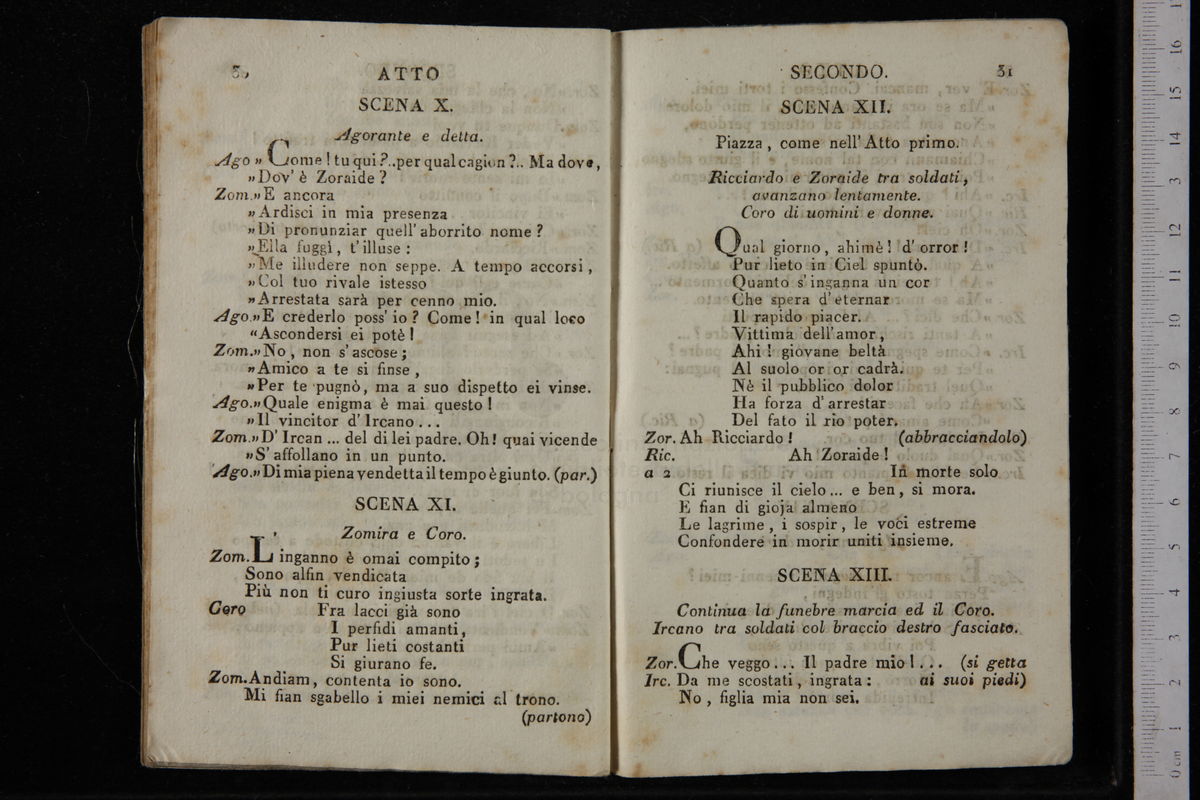 ATTO
SCENA X.
Agorante e detta.
Ago » Come! tu qui?..per qual cagion?.. Ma dove,
»Dov' è Zoraide?
Zom.»E ancora
»Ardisci in mia presenza
»Di pronunziar quell' aborrito nome?
»Ella fuggì, t' illuse:
»Me illudere non seppe. A tempo accorsi,
»Col tuo rivale istesso
»Arrestata sarà per cenno mio.
Ago.»E crederlo poss' io? Come! in qual loco
“Ascondersi ei potè!
Zom.»No, non s' ascose;
»Amico a te si finse,
»Per te pugnò, ma a suo dispetto ei vinse.
Ago.»Quale enigma è mai questo!
»Il vincitor d' Ircano...
Zom.»D' Ircan ... del di lei padre. Oh! quai vicende
»S' affollano in un punto.
Ago.»Di mia piena vendetta il tempo è giunto. (par.)
SCENA XI.
Zomira e Coro.
Zom. L' inganno è omai compito;
Sono alfin vendicata
Più non ti curo ingiusta sorte ingrata.
Coro Fra lacci già sono
I perfidi amanti,
Pur lieti costanti
Si giurano fe.
Zom. Andiam, contenta io sono.
Mi fian sgabello i miei nemici al trono.
(partono)
SECONDO. 31
SCENA XII.
Piazza, come nell' Atto primo.
Ricciardo e Zoraide tra soldati,
avanzano lentamente.
Coro di uomini e donne.
Qual giorno, ahimè! d' orror!
Pur lieto in Ciel spuntò.
Quanto s' inganna un cor
Che spera d' eternar
Il rapido piacer.
Vittima dell' amor,
Ahi! giovane beltà
Al suolo or or cadrà.
Nè il pubblico dolor
Ha forza d' arrestar
Del fato il rio poter.
Zor. Ah Ricciardo! (abbracciandolo)
Ric. Ah Zoraide!
a 2 In morte solo
Ci riunisce il cielo... e ben, si mora.
E fian di gioja almeno
Le lagrime, i sospir, le voci estreme
Confondere in morir uniti insieme.
SCENA XIII.
Continua la funebre marcia ed il Coro.
Ircano tra soldati col braccio destro fasciato.
Zor. Che veggo... Il padre mio!... (si getta
Irc. Da me scostati, ingrata: ai suoi piedi)
No, figlia mia non sei.
0 cm 1 2 3 4 5 6 7 8 9 10 11 12 13 14 15 16